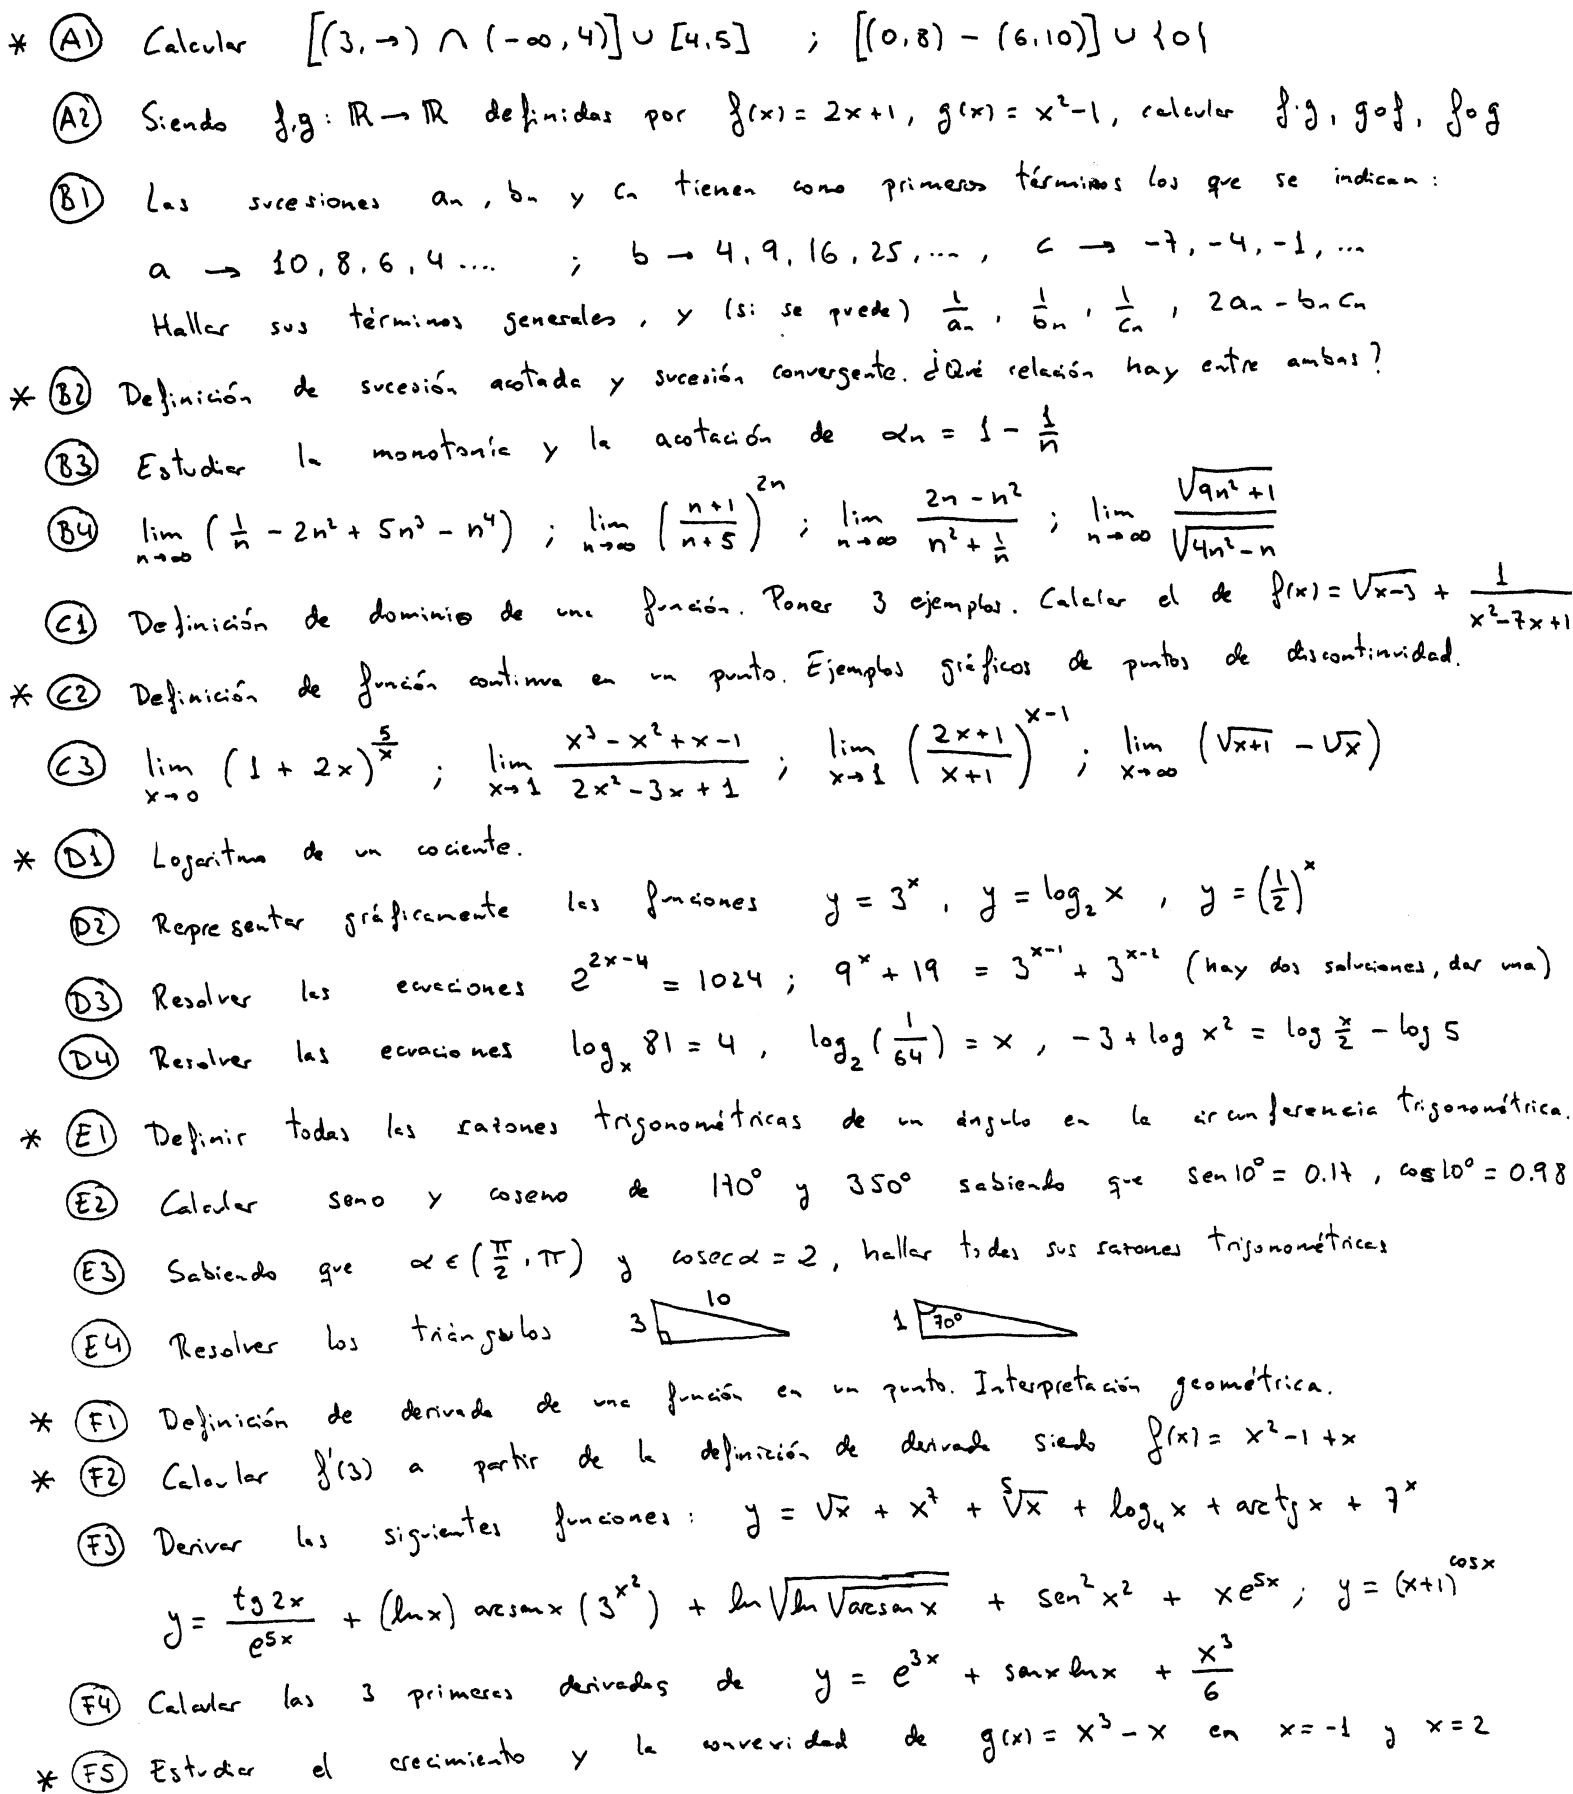 * (A1) Calcular [(3,→) ∩ (-∞,4)] ∪ [4,5] ; [(0,8) - (6,10)] ∪ {0{
(A2) Siendo f,g: ℝ→ℝ definidas por f(x) = 2x+1, g(x) = x²-1, calcular f·g, g∘f, f∘g
(B1) Las sucesiones an, bn y cn tienen como primeros términos los que se indican:
a → 10, 8, 6, 4 .... ; b → 4, 9, 16, 25, ..., c → -7, -4, -1, ...
Hallar sus términos generales, y (si se puede) 1/an, 1/bn, 1/cn, 2an - bn cn
* (B2) Definición de sucesión acotada y sucesión convergente. ¿Qué relación hay entre ambas?
(B3) Estudiar la monotonía y la acotación de αn = 1 - 1/n
(B4) lim n→∞ (1/n - 2n² + 5n³ - n⁴) ; lim n→∞ ((n+1)/(n+5))^2n ; lim n→∞ (2n - n²)/(n² + 1/n) ; lim n→∞ √(9n²+1)/√(4n²-n)
(C1) Definición de dominio de una función. Poner 3 ejemplos. Calclar el de f(x) = √(x-3) + 1/(x²-7x+1)
* (C2) Definición de función continua en un punto. Ejemplos gráficos de puntos de discontinuidad.
(C3) lim x→0 (1 + 2x)^(5/x) ; lim x→1 (x³ - x² + x - 1)/(2x² - 3x + 1) ; lim x→1 ((2x+1)/(x+1))^(x-1) ; lim x→∞ (√(x+1) - √x)
* (D1) Logaritmo de un cociente.
(D2) Representar gráficamente las funciones y = 3^x, y = log₂ x, y = (1/2)^x
(D3) Resolver las ecuaciones 2^(2x-4) = 1024 ; 9^x + 19 = 3^(x-1) + 3^(x-2) (hay dos soluciones, dar una)
(D4) Resolver las ecuaciones log_x 81 = 4, log₂ (1/64) = x, -3 + log x² = log x/2 - log 5
* (E1) Definir todas las razones trigonométricas de un ángulo en la circunferencia trigonométrica.
(E2) Calcular seno y coseno de 170° y 350° sabiendo que sen 10° = 0.17, cos 10° = 0.98
(E3) Sabiendo que α ∈ (π/2, π) y cosec α = 2, hallar todas sus razones trigonométricas
(E4) Resolver los triángulos 3 10 1 70°
* (F1) Definición de derivada de una función en un punto. Interpretación geométrica.
* (F2) Calcular f'(3) a partir de la definición de derivada siedo f(x) = x² - 1 + x
(F3) Derivar las siguientes funciones: y = √x + x⁷ + ⁵√x + log₄ x + arctg x + 7^x
y = tg 2x/e^5x + (ln x) arcsen x (3^x²) + ln √(ln √(arcsen x)) + sen² x² + x e^5x ; y = (x+1)^cos x
(F4) Calcular las 3 primeras derivadas de y = e^3x + sen x ln x + x³/6
* (F5) Estudiar el crecimiento y la convexidad de g(x) = x³ - x en x = -1 y x = 2